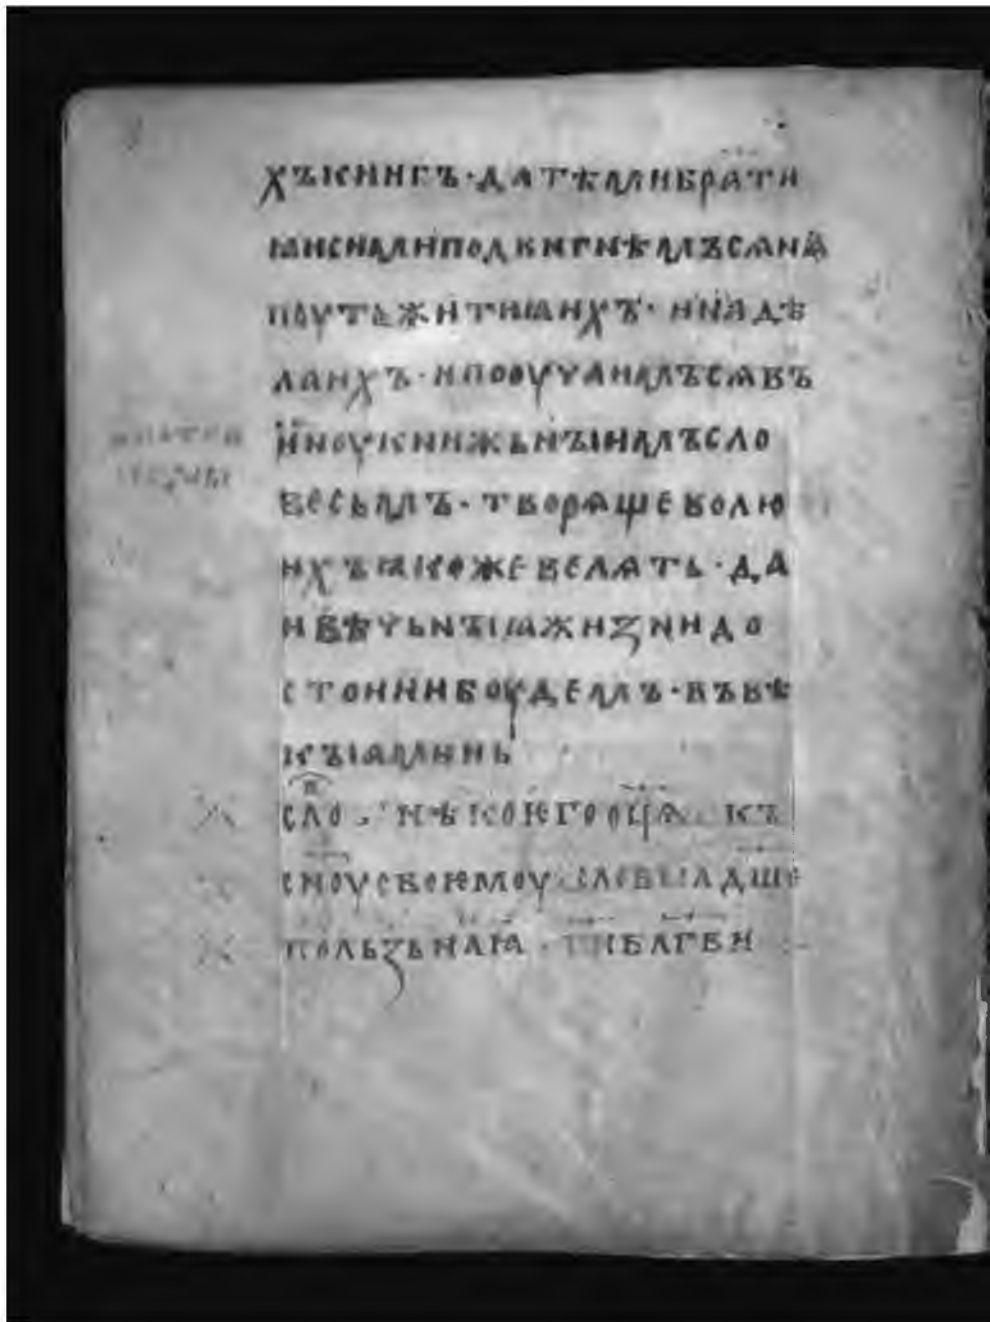 хъкнигъ · датѣмибрати
ꙗисимиподвигнѣмъсѧна
поутьжитиꙗихъ · инадѣ
лаихъ · ипооучаимъсѧвъ
иноукнижьнꙑимъсло
весьмъ · творѧщеволю
ихъꙗкожевелѧть · да
ивѣчьнꙑꙗжизнидо
стоинибоудемъ · въвѣ
кꙑаминь
сло нѣкоѥгооц҃а къ
сн҃оусвоѥмоу словесадш҃е
пользьнаꙗ · гиблгви